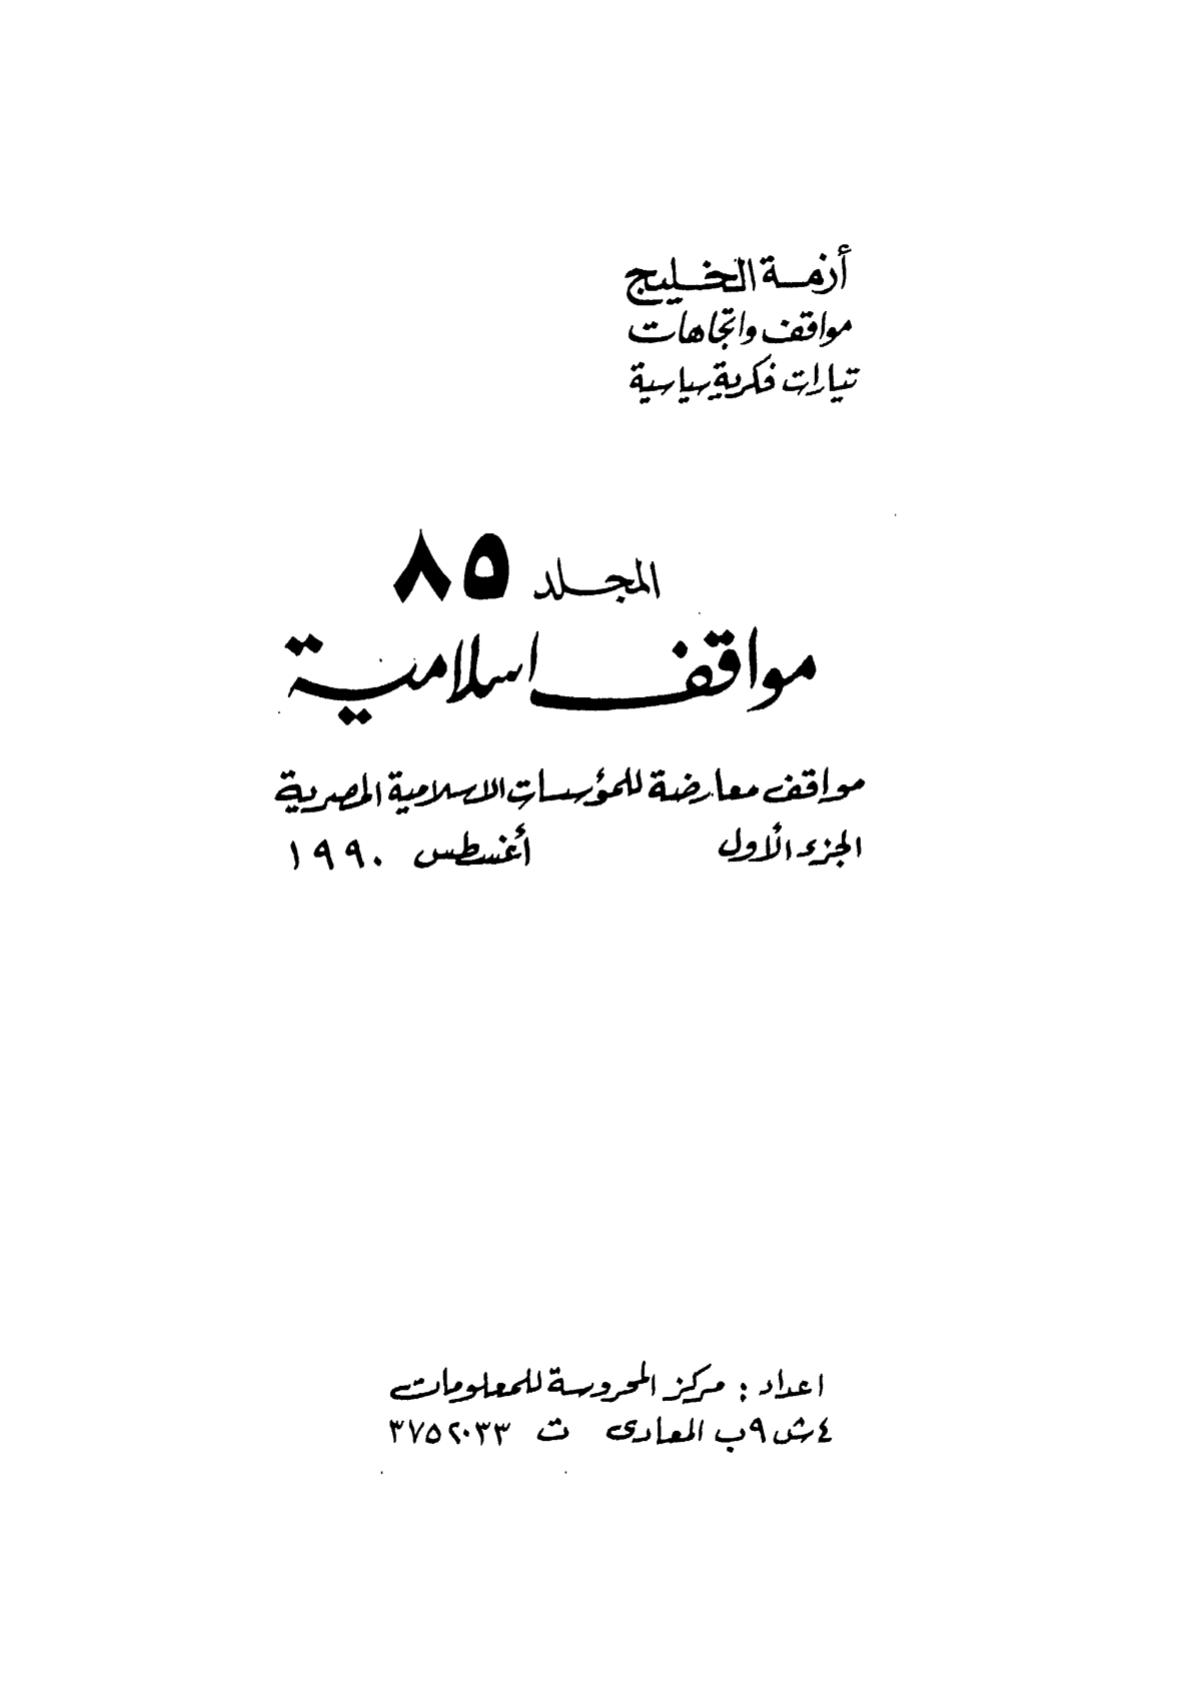 أزمة الخليج
مواقف واتجاهات
تيارات فكرية سياسية
المجلد ٨٥
مواقف اسلامية
مواقف معارضة للمؤسسات الاسلامية المصرية
الجزء الأول أغسطس ١٩٩٠
اعداد : مركز المحروسة للمعلومات
٤ ش ٩ ب المعادى ت ٣٧٥٢٠٣٣